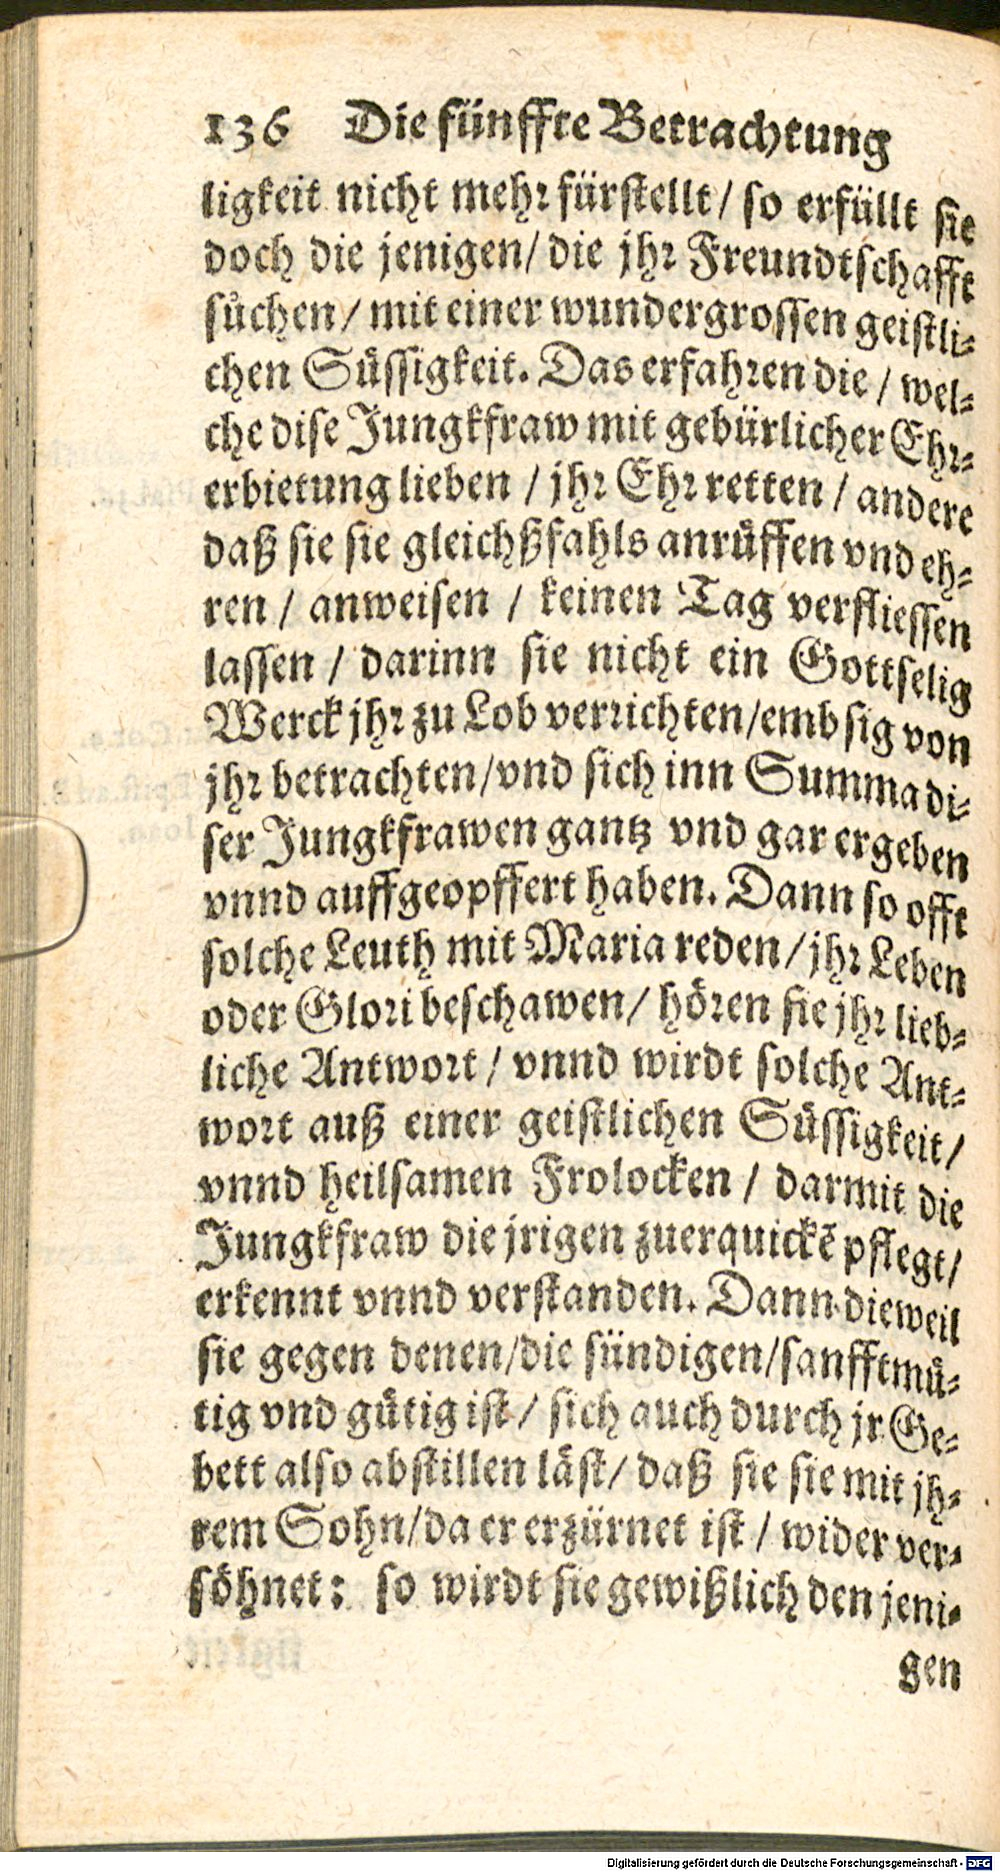 136 Die fünffte Betrachtung
ligkeit nicht mehr fürstellt / so erfüllt sie
doch die jenigen / die jhr Freundtschafft
suͦchen / mit einer wundergrossen geistli-
chen Süssigkeit. Das erfahren die / wel-
che dise Jungkfraw mit gebürlicher Ehr-
erbietung lieben / jhr Ehr retten / andere
daß sie sie gleichßfahls anruͤffen vnd eh-
ren / anweisen / keinen Tag verfliessen
lassen / darinn sie nicht ein Gottselig
Werck jhr zu Lob verrichten / embsig von
jhr betrachten / vnd sich inn Summa di-
ser Jungkfrawen gantz vnd gar ergeben
vnnd auffgeopffert haben. Dann so offt
solche Leuth mit Maria reden / jhr Leben
oder Glori beschawen / hören sie jhr lieb-
liche Antwort / vnnd wirdt solche Ant-
wort auß einer geistlichen Süssigkeit /
vnnd heilsamen Frolocken / darmit die
Jungkfraw die jrigen zuerquickē pflegt /
erkennt vnnd verstanden. Dann dieweil
sie gegen denen / die sündigen / sanfftmuͤ-
tig vnd guͤtig ist / sich auch durch jr Ge-
bett also abstillen läst / daß sie sie mit jh-
rem Sohn / da er erzürnet ist / wider ver-
söhnet: so wirdt sie gewißlich den jeni-
gen
Digitalisierung gefördert durch die Deutsche Forschungsgemeinschaft - DFG